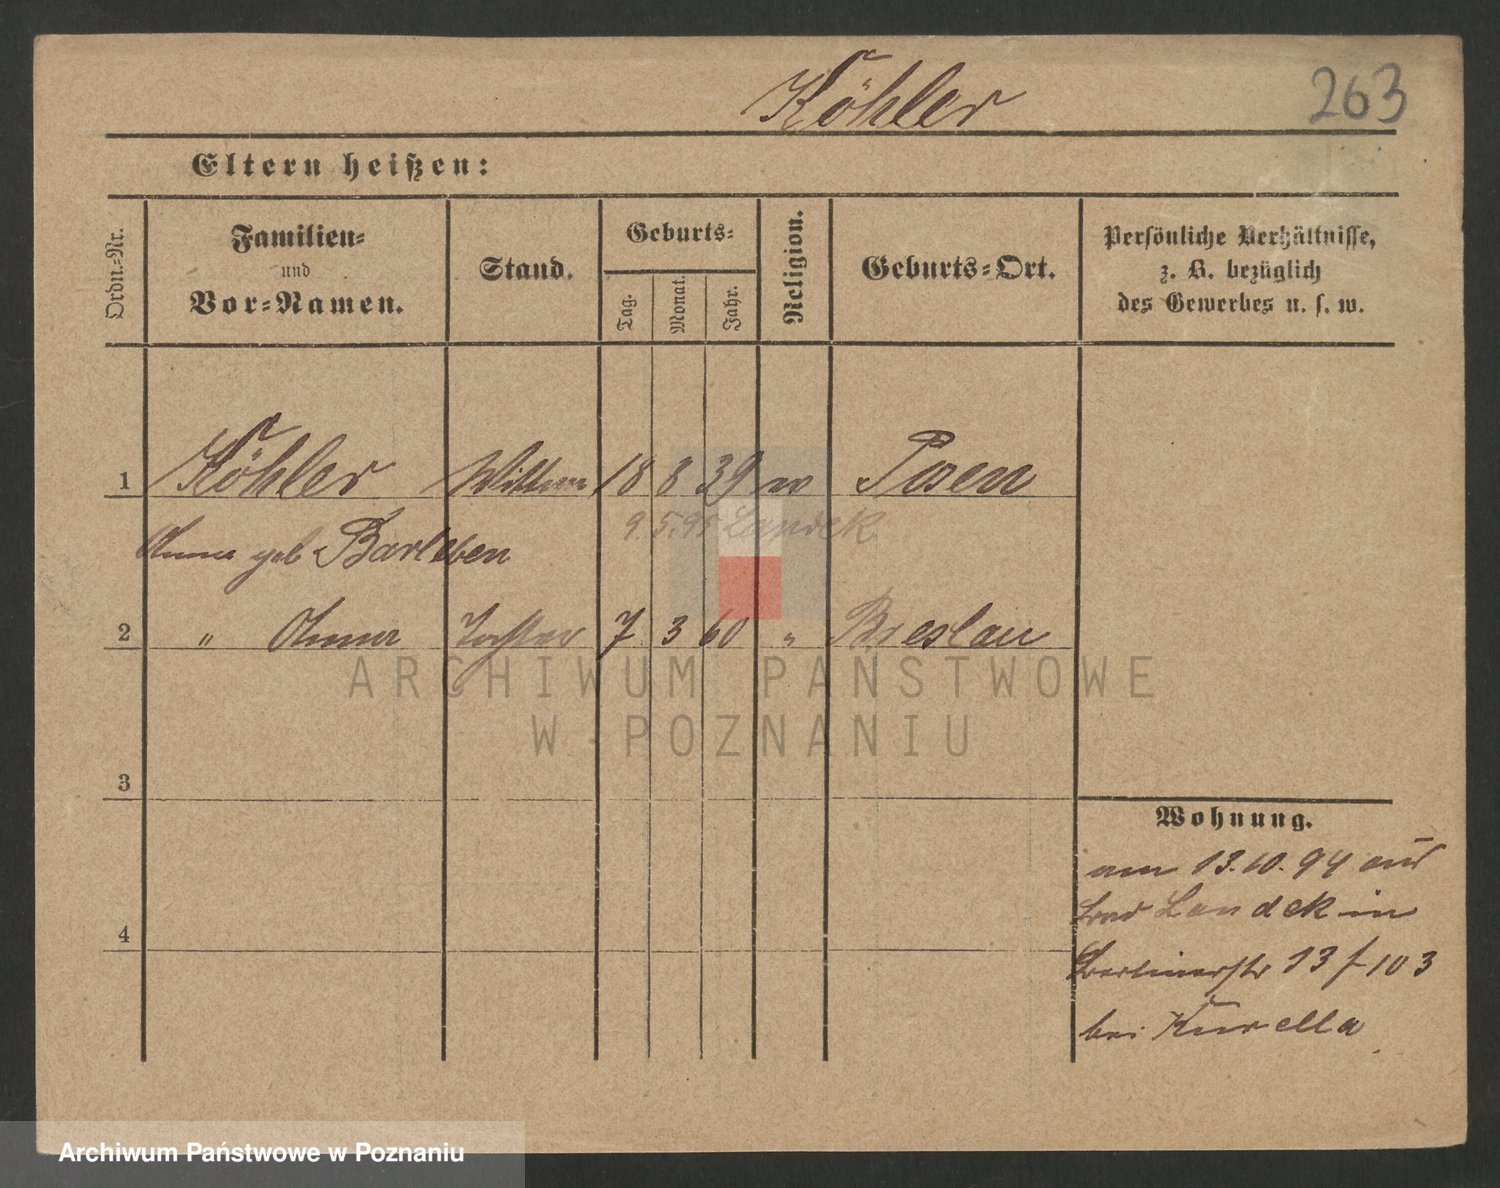 Köhler 263
Eltern heißen:
Ordn.-Nr.
Familien-
und
Vor-Namen.
Stand.
Geburts-
Tag.
Monat.
Jahr.
Religion.
Geburts-Ort.
Persönliche Verhältnisse,
z. B. bezüglich
des Gewerbes u. s. w.
1 Köhler Wittwe 18 8 39 Posen
9.5.95 Landek
Anna geb Barleben
2 " Anna Tochter 7 3 60 " Breslau
ARCHIWUM PAŃSTWOWE
W POZNANIU
3
Wohnung.
am 13.10.94 aus
Bad Landek in
4
Berlinerstr 13 f 103
bei Kurella
Archiwum Państwowe w Poznaniu